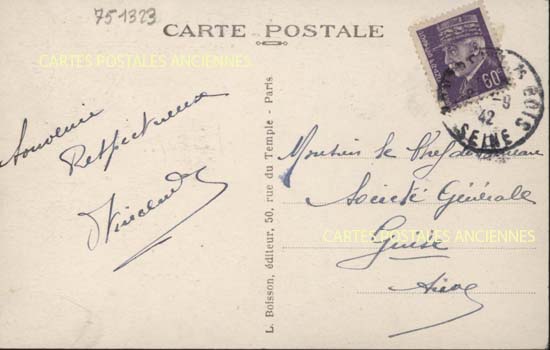 751323
CARTE POSTALE
CARTES POSTALES ANCIENNES
60
BOIS
-9
42
SEINE
Souvenir
Respectueux
Vincendo
L. Boisson, éditeur, 50, rue du Temple - Paris
Monsieur le Chef de Bureau
Société Générale
CARTES POSTALES ANCIENNES
Guise
Aisne